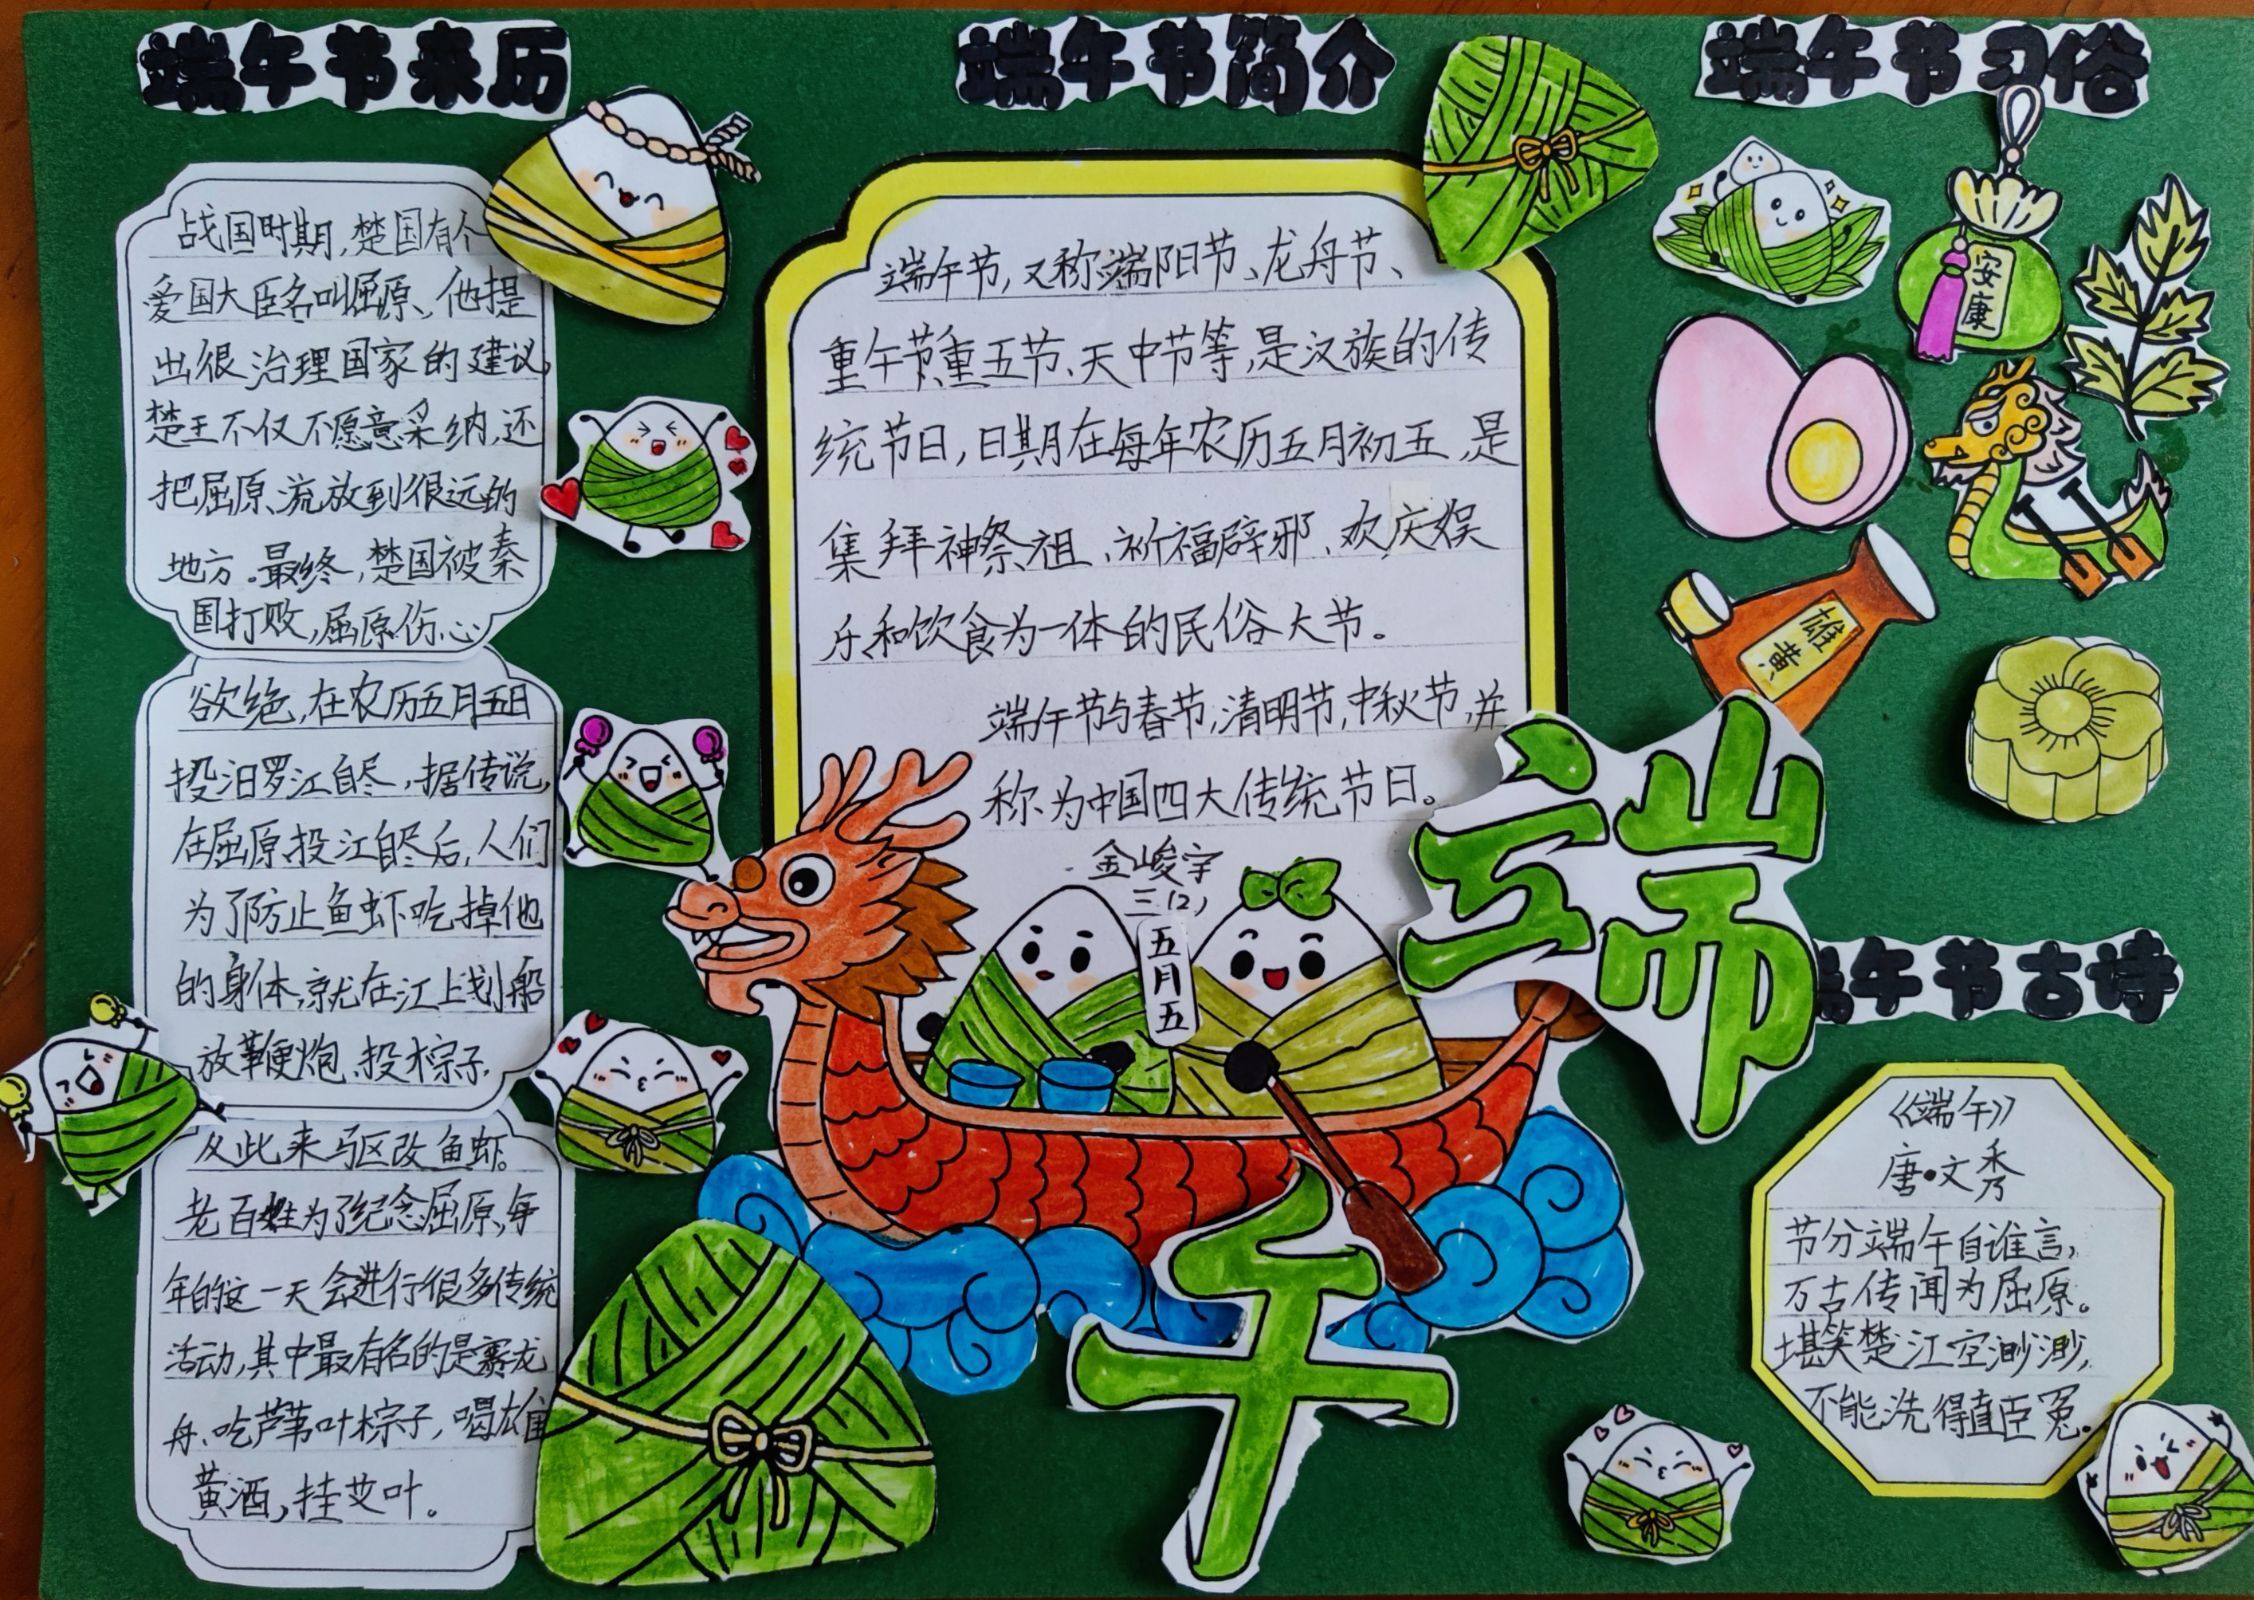 端午节来历
战国时期，楚国有个
爱国大臣名叫屈原、他提
出很治理国家的建议，
楚王不仅不愿意采纳，还
把屈原、流放到很远的
地方。最终，楚国被秦
国打败，屈原伤心
欲绝，在农历五月五日
投汨罗江自尽，据传说，
在屈原投江自尽后，人们
为了防止鱼虾吃掉他
的身体，就在江上划船
放鞭炮、投粽子，
从此来驱改鱼虾。
老百姓为了纪念屈原，每
年的这一天会进行很多传统
活动，其中最有名的是赛龙
舟、吃芦苇叶粽子，喝雄
黄酒，挂艾叶。
端午节简介
端午节，又称端阳节、龙舟节、
重午节、重五节、天中节等，是汉族的传
统节日，日期在每年农历五月初五，是
集拜神祭祖、祈福辟邪、欢庆娱
乐和饮食为一体的民俗大节。
端午节与春节，清明节，中秋节，并
称为中国四大传统节日。
金峻宇
三(2)
五月五
端
午
端午节习俗
安康
雄黄
端午节古诗
《端午》
唐·文秀
节分端午自谁言，
万古传闻为屈原。
堪笑楚江空渺渺，
不能洗得直臣冤。